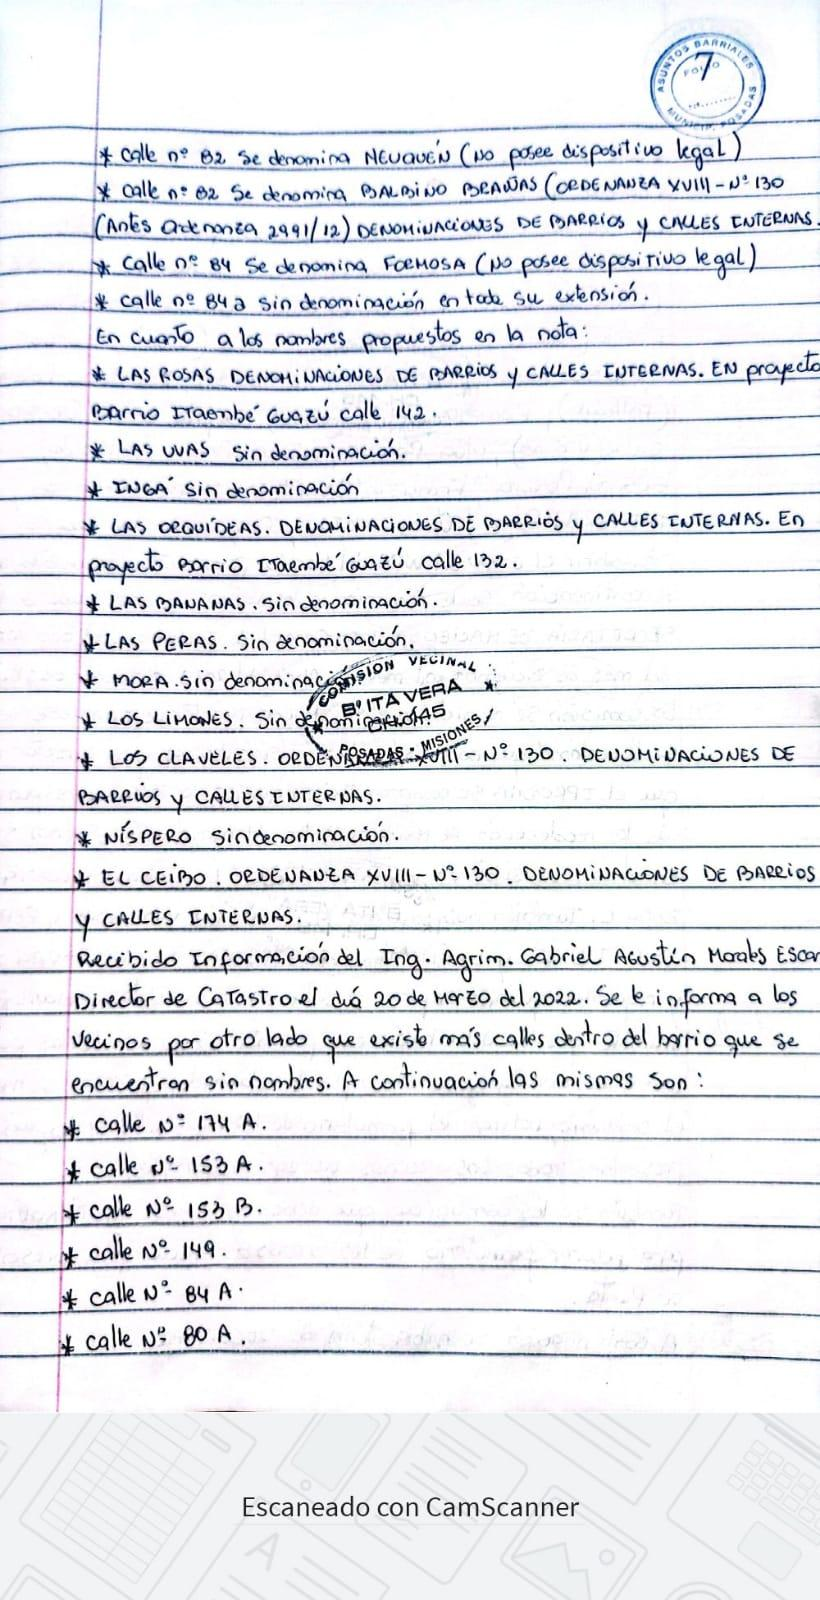 ASUNTOS BARRIALES
FOLIO
7
MUNICIP. POSADAS
* Calle nº 82 Se denomina NEUQUÉN (No posee dispositivo legal)
* Calle nº 82 Se denomina BALBINO BRAÑAS (ORDENANZA XVIII - Nº 130
(Antes Ordenanza 2991/12) DENOMINACIONES DE BARRIOS y CALLES INTERNAS.
* Calle nº 84 Se denomina FORMOSA (No posee dispositivo legal)
* Calle nº 84 a sin denominación en toda su extensión.
En cuanto a los nombres propuestos en la nota:
* LAS ROSAS DENOMINACIONES DE BARRIOS y CALLES INTERNAS. EN proyecto
Barrio Itaembé Guazú calle 142.
* LAS UVAS Sin denominación.
* INGÁ sin denominación
* LAS ORQUÍDEAS. DENOMINACIONES DE BARRIOS y CALLES INTERNAS. En
proyecto Barrio Itaembé Guazú calle 132.
* LAS BANANAS. Sin denominación.
* LAS PERAS. Sin denominación.
* MORA. sin denominación
COMISION VECINAL
Bº ITA VERA
* LOS LIMONES. Sin denominación
CH. 145
POSADAS - MISIONES
* LOS CLAVELES. ORDENANZA XVIII - Nº 130. DENOMINACIONES DE
BARRIOS y CALLES INTERNAS.
* NÍSPERO sin denominación.
* EL CEIBO. ORDENANZA XVIII - Nº 130. DENOMINACIONES DE BARRIOS
y CALLES INTERNAS.
Recibido Información del Ing. Agrim. Gabriel Agustín Morales Escar
Director de Catastro el día 20 de Marzo del 2022. Se le informa a los
vecinos por otro lado que existe más calles dentro del barrio que se
encuentran sin nombres. A continuación las mismas son:
* Calle Nº 174 A.
* calle Nº 153 A.
* calle Nº 153 B.
* calle Nº 149.
* calle Nº 84 A.
* calle Nº 80 A.
Escaneado con CamScanner